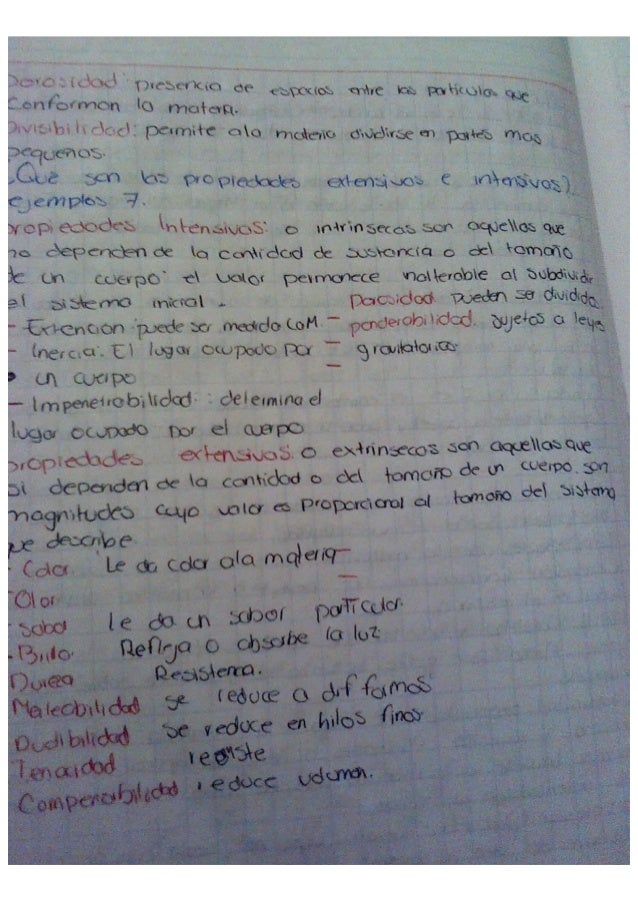 Porosidad: presencia de espacios entre las particulas que
Conforman la materia.
Divisibilidad: permite ala materia dividirse en partes mas
pequeñas.
¿Que son las propiedades extensivas e intensivas?
ejemplos 7.
propiedades Intensivas: o intrinsecas son aquellas que
no dependen de la cantidad de sustancia o del tamaño
de un cuerpo: el valor permanece inalterable al subdividir
el sistema inicial.
- Extencion: puede ser medido
- Inercia: El lugar ocupado por
un cuerpo
- Impenetrabilidad: determina el
lugar ocupado por el cuerpo
porosidad pueden ser dividida
- ponderabilidad. sujetos a leyes
- gravitatorias
-
propiedades extensivas: o extrinsecos son aquellas que
si dependen de la cantidad o del tamaño de un cuerpo. son
magnitudes cuyo valor es proporcional al tamaño del sistema
que describe.
- Color Le da color ala materia -
-
- Olor
- Sabor le da un sabor particular.
- Brillo. Refleja o absorbe la luz
Dureza Resistencia.
Maleabilidad se reduce a dif formas
Ductibilidad se reduce en hilos finos
Tenacidad resiste
reduce volumen.